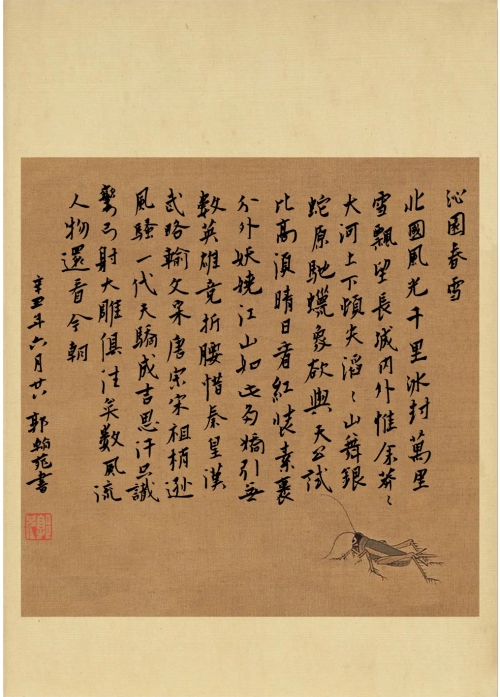 沁園春雪
北國風光千里冰封萬里
雪飄望長城内外惟余莽〻
大河上下頓失滔〻山舞銀
蛇原馳蠟象欲與天公試
比高須晴日看紅裝素裹
分外妖嬈江山如此多嬌引無
數英雄竞折腰惜秦皇漢
武略輸文采唐宗宋祖稍遜
風騷一代天驕成吉思汗只識
彎弓射大雕俱往矣數風流
人物還看今朝
辛丑年六月廿八 郭 書